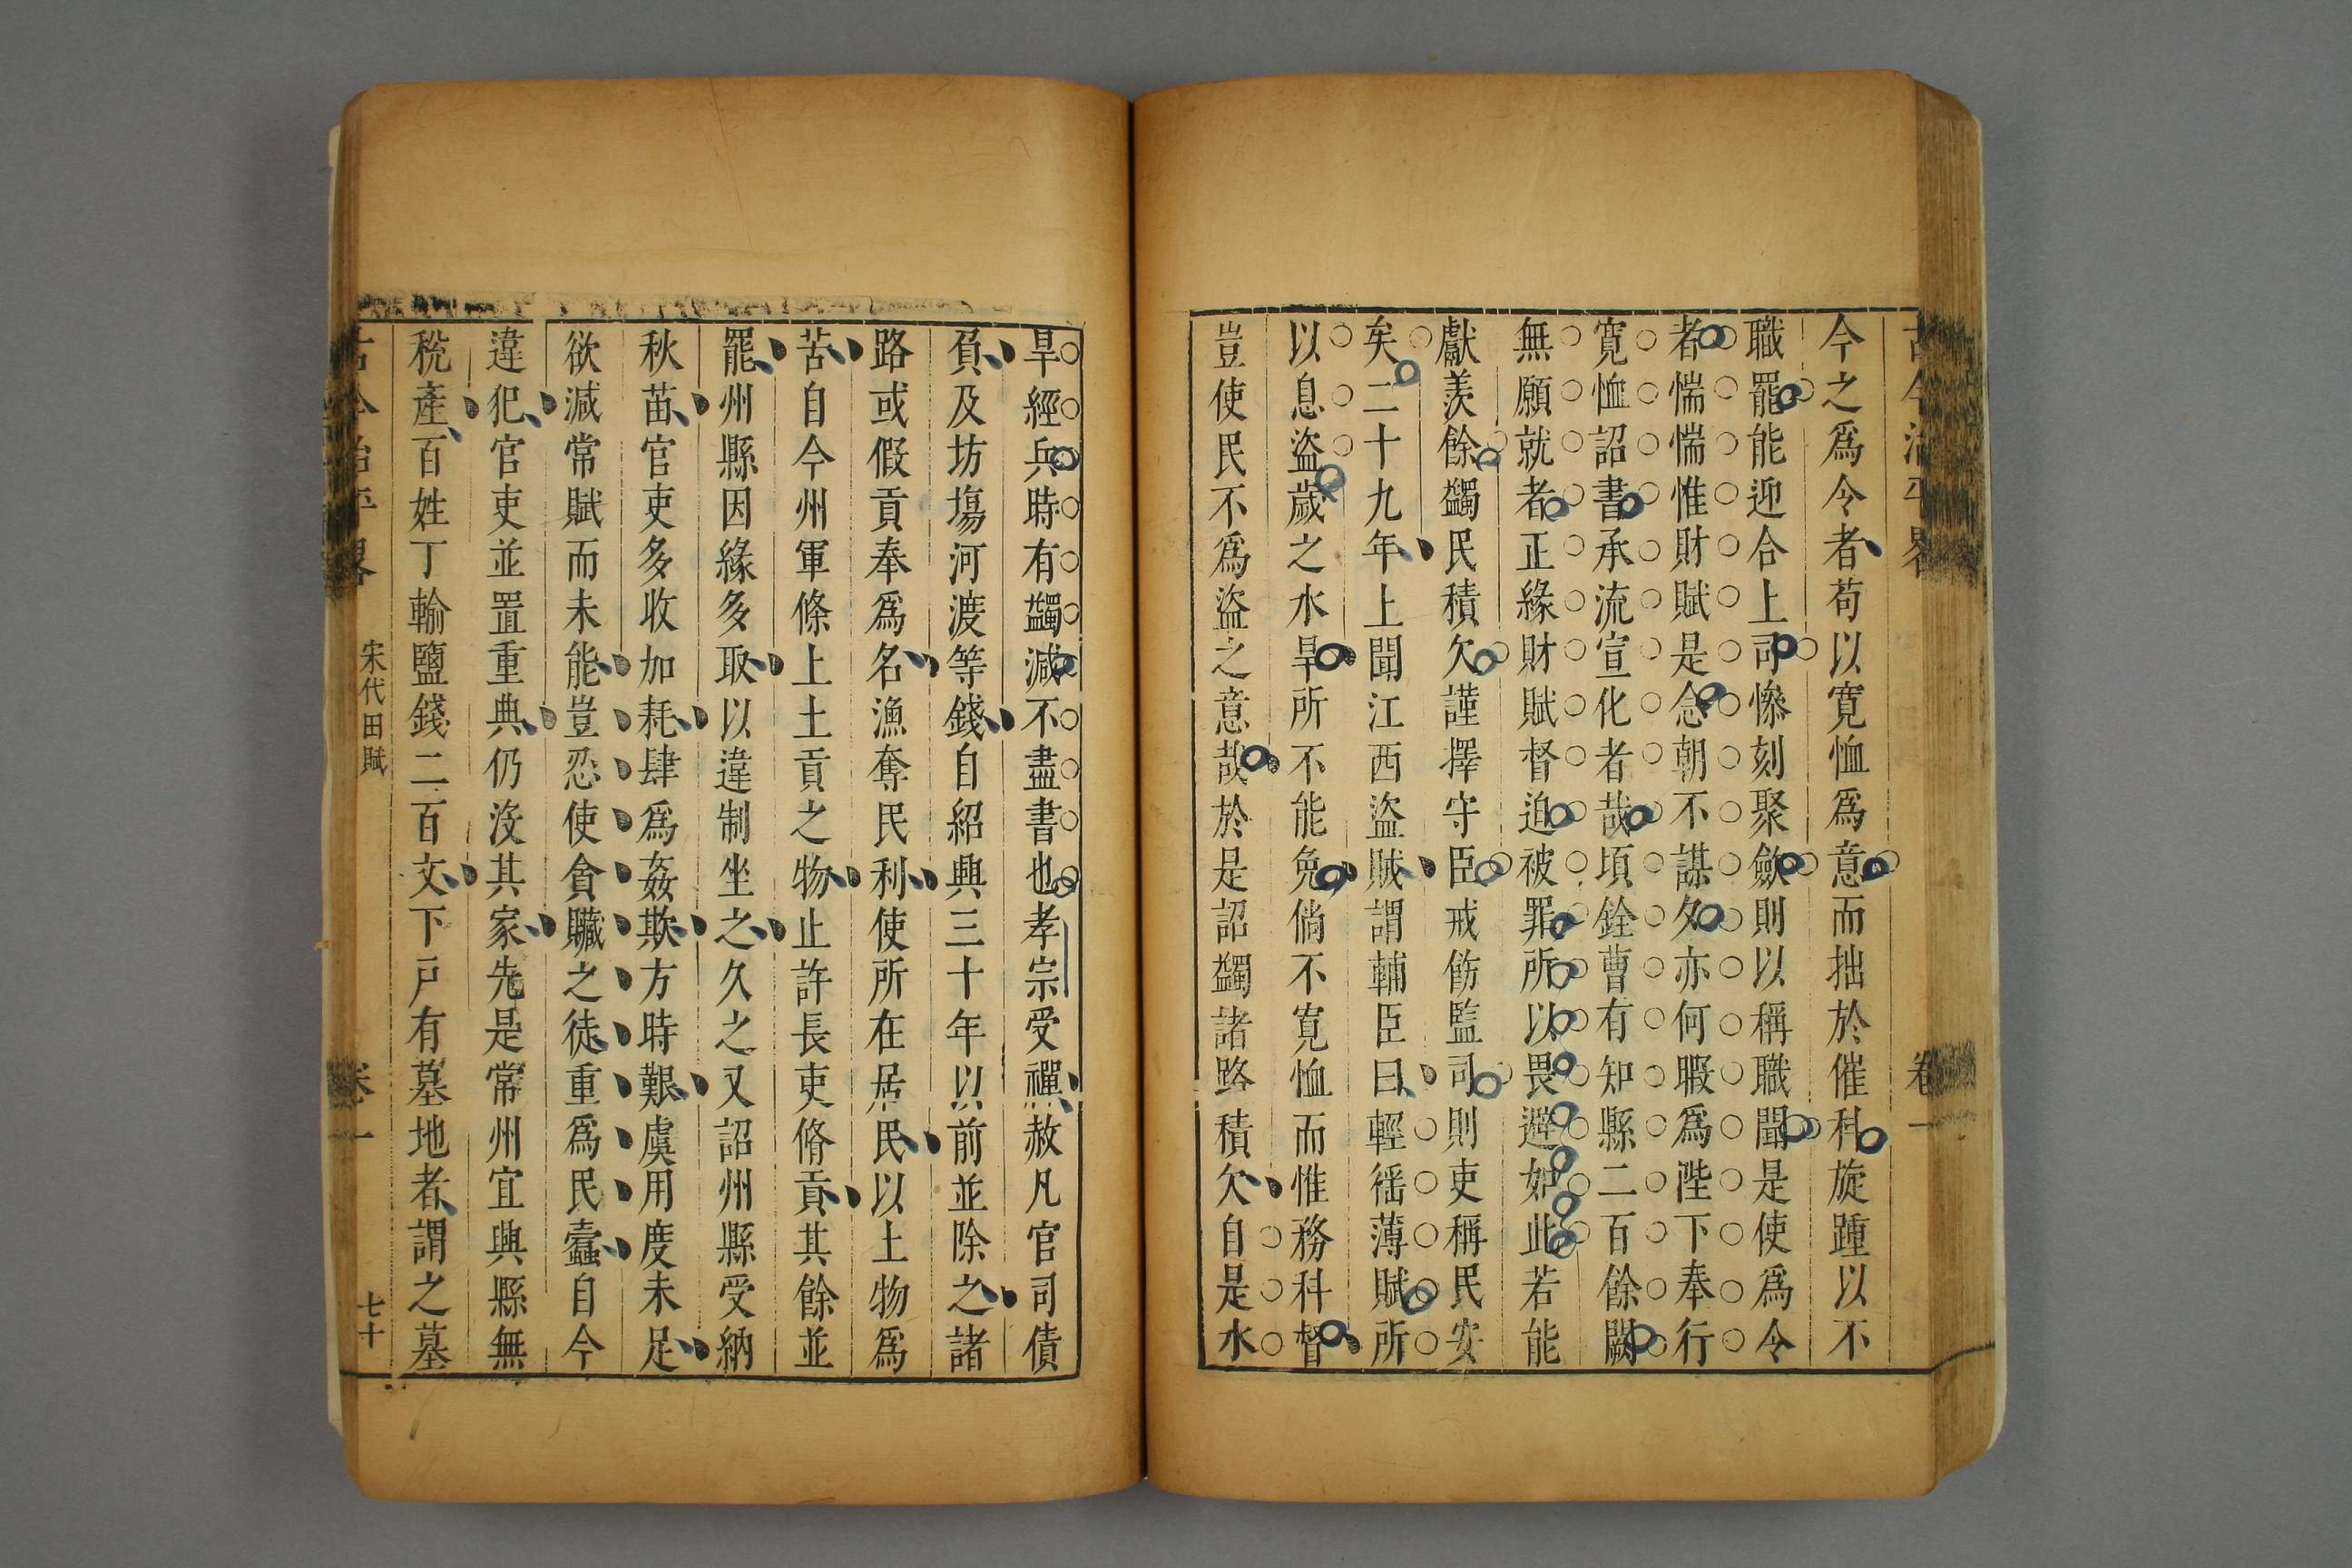 今之爲令者苟以寬恤爲意而拙於催科旋踵以不
職罷能迎合上司慘刻聚歛則以稱職聞是使爲令
者惴惴惟財賦是念朝不謀夕亦何暇爲陛下奉行
寬恤詔書承流宣化者哉頃銓曹有知縣二百餘闕
無願就者正緣財賦督迫被罪所以畏避如此若能
獻羨餘蠲民積欠謹擇守臣戒飭監司則吏稱民安
矣二十九年上聞江西盜賊謂輔臣曰輕徭薄賦所
以息盜歲之水旱所不能免倘不寬恤而惟務科督
豈使民不爲盜之意哉於是詔蠲諸路積欠自是水
旱經兵時有蠲減不盡書也孝宗受禪赦凡官司債
負及坊塲河渡等錢自紹興三十年以前並除之諸
路或假貢奉爲名漁奪民利使所在居民以土物爲
苦自今州軍條上土貢之物止許長吏脩貢其餘並
罷州縣因緣多取以違制坐之久之又詔州縣受納
秋苗官吏多收加耗肆爲姦欺方時艱虞用度未足
欲減常賦而未能豈忍使貪贓之徒重爲民蠹自今
違犯官吏並置重典仍沒其家先是常州宜興縣無
稅產百姓丁輸鹽錢二百文下戸有墓地者謂之墓
古今治平畧 宋代田賦 卷一 七十